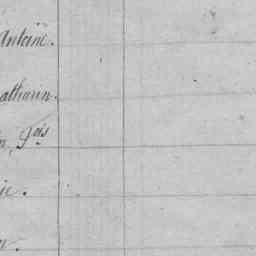 Antoine.
atharin.
n, Fois
ie.
n.